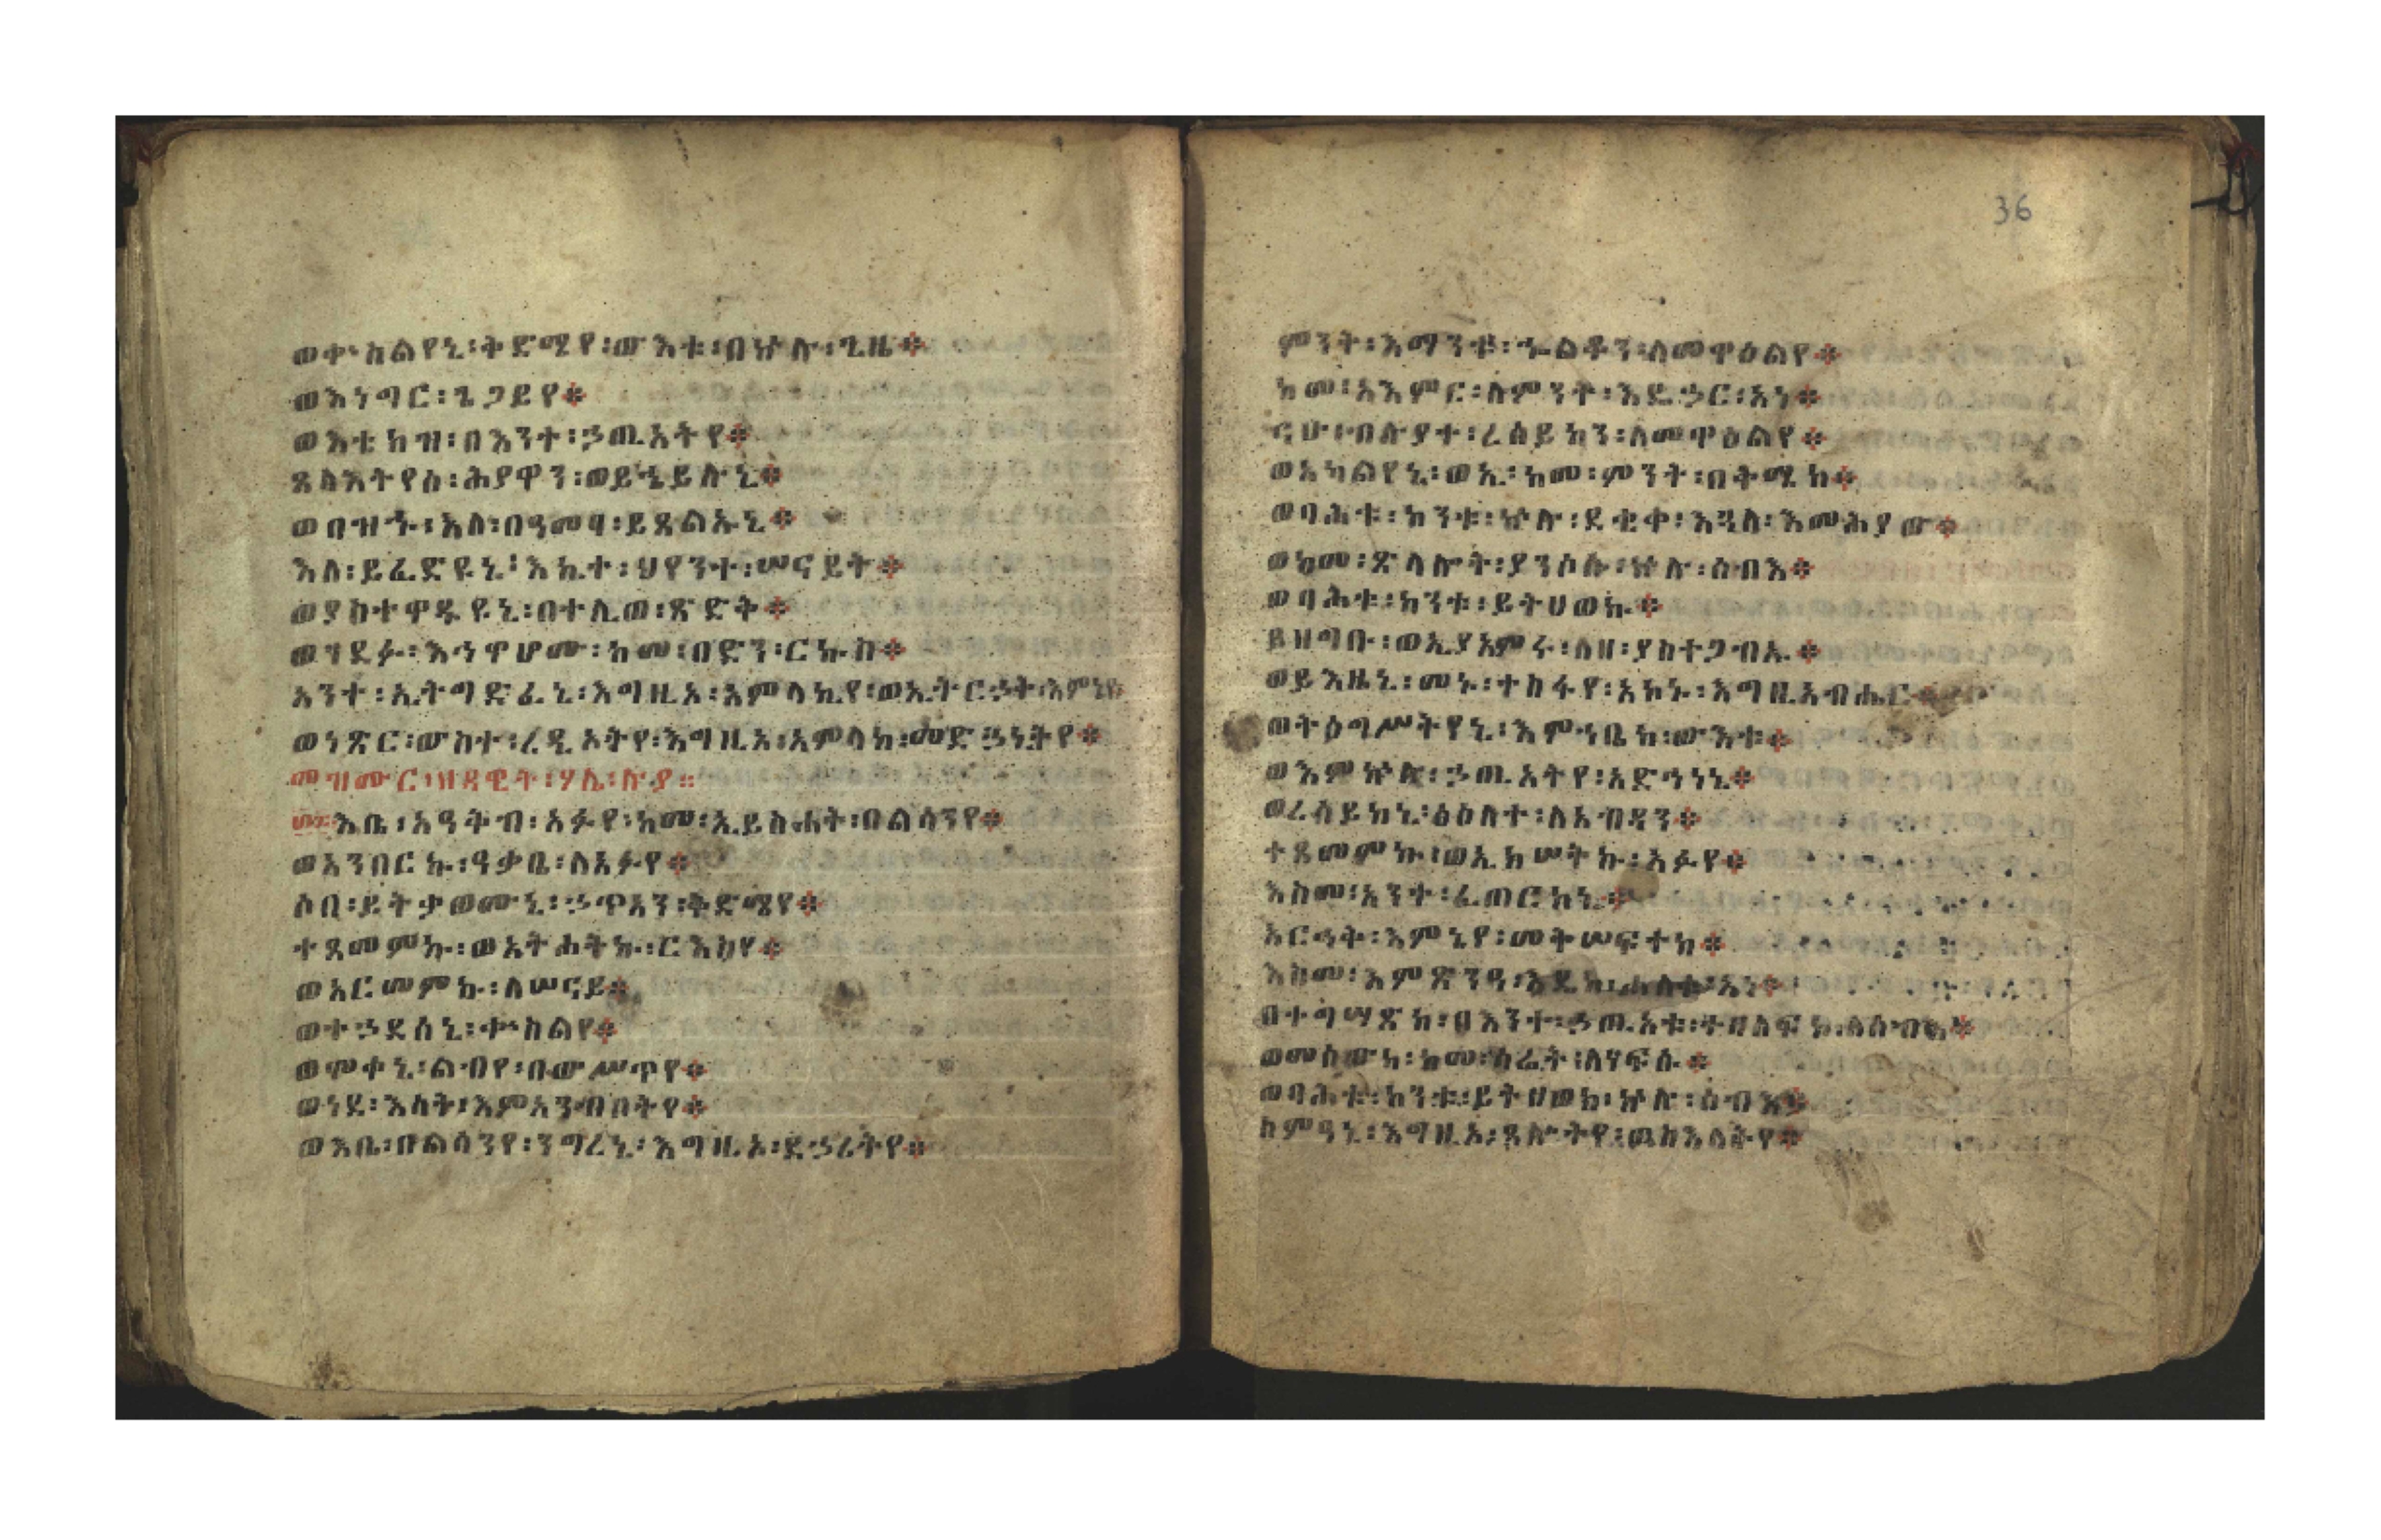 ወቍስልየኒ፡ቅድሜየ፡ውእቱ፡በኵሉ፡ጊዜ፨
ወእነግር፡ጌጋይየ፨
ወእቴክዝ፡በእንተ፡ኃጢአትየ፨
ጸላእትየሰ፡ሕያዋን፡ወይኄይሉኒ፨
ወበዝኁ፡እለ፡በዓመፃ፡ይጸልኡኒ፨
እለ፡ይፈድዩኒ፡እኪተ፡ህየንተ፡ሠናይት፨
ወያስተዋድዩኒ፡በተሊወ፡ጽድቅ፨
ወገደፉ፡እኅዋሆሙ፡ከመ፡በድን፡ርኩስ፨
አንተ፡ኢትግድፈኒ፡እግዚአ፡አምላኪየ፡ወኢትርኃቅ፡እምኔየ
ወነጽር፡ውስተ፡ረዲኦትየ፡እግዚአ፡አምላከ፡መድኃኒትየ፨
መዝሙር፡ዘዳዊት፡ሃሌ፡ሉያ።
እቤ፡አዓቅብ፡አፉየ፡ከመ፡ኢይስሐት፡በልሳንየ፨
ወአንበርኩ፡ዓቃቤ፡ለአፉየ፨
ሶበ፡ይትቃወሙኒ፡ኃጥአን፡ቅድሜየ፨
ተጸመምኩ፡ወአትሐትኩ፡ርእስየ፨
ወአርመምኩ፡ለሠናይ፨
ወተኃደሰኒ፡ቍስልየ፨
ወሞቀኒ፡ልብየ፡በውሥጥየ፨
ወነደ፡እሳት፡እምአንብቦትየ፨
ወእቤ፡በልሳንየ፡ንግረኒ፡እግዚአ፡ደኃሪትየ፨
36
ምንት፡እማንቱ፡ኍልቆን፡ለመዋዕልየ፨
ከመ፡አእምር፡ለምንት፡እዴኃር፡አነ፨
ናሁ፡ብሉያተ፡ረሰይኮን፡ለመዋዕልየ፨
ወአካልየኒ፡ወኢ፡ከመ፡ምንት፡በቅሜከ፨
ወባሕቱ፡ከንቱ፡ኵሉ፡ደቂቀ፡እጓለ፡እመሕያው፨
ወከመ፡ጽላሎት፡ያንሶሱ፡ኵሉ፡ሰብእ፨
ወባሕቱ፡ከንቱ፡ይትሀወኩ፨
ይዘግቡ፡ወኢያአምሩ፡ለዘ፡ያስተጋብኡ፨
ወይእዜኒ፡መኑ፡ተስፋየ፡አኮኑ፡እግዚአብሔር፨
ወትዕግሥትየኒ፡እምኀቤከ፡ውእቱ፨
ወእምኵሉ፡ኃጢአትየ፡አድኅነኒ፨
ወረሰይከኒ፡ፅዕለተ፡ለአብዳን፨
ተጸመምኩ፡ወኢከሠትኩ፡አፉየ፨
እስመ፡አንተ፡ፈጠርከኒ፨
አርኅቅ፡እምኔየ፡መቅሠፍተከ፨
እስመ፡እምጽንዓ፡እዴከ፡ሐለቁ፡አነ፨
በተግሣጽከ፡በእንተ፡ኃጢአቱ፡ተዘለፍኮ፡ለሰብእ፨
ወመሰውከ፡ከመ፡ሳሬት፡ለነፍሱ፨
ወባሕቱ፡ከንቱ፡ይትሀወክ፡ኵሉ፡ሰብእ፨
ስምዓኒ፡እግዚአ፡ጸሎትየ፡ወስእለትየ፨